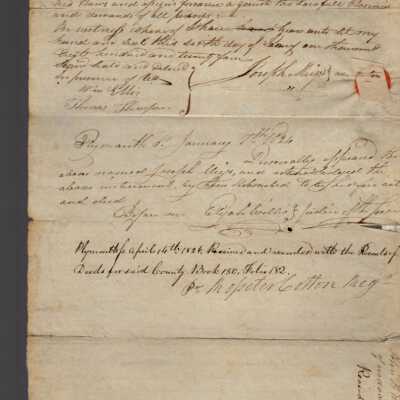 his heirs and assigns forever against the lawful claims
and demands of all persons
In witness whereof I have hereunto set my
hand and seal this day of one thousand
eight hundred and twenty four
Signed Sealed and deliverd
in presence of
Wm Ellis
Thomas Thompson
Joseph
Plymouth Ss. January 1824 Personally appeared the
above named Joseph and acknowledged the
above instrument by him subscribed to be his free act
and deed
Before me Elijah Justice of the Peace
Plymouth Ss April 14th 1824 Received and recorded with the Records of
Deeds for said County Book 150. Folio 182.
Pr Rossiter Cotton Regr